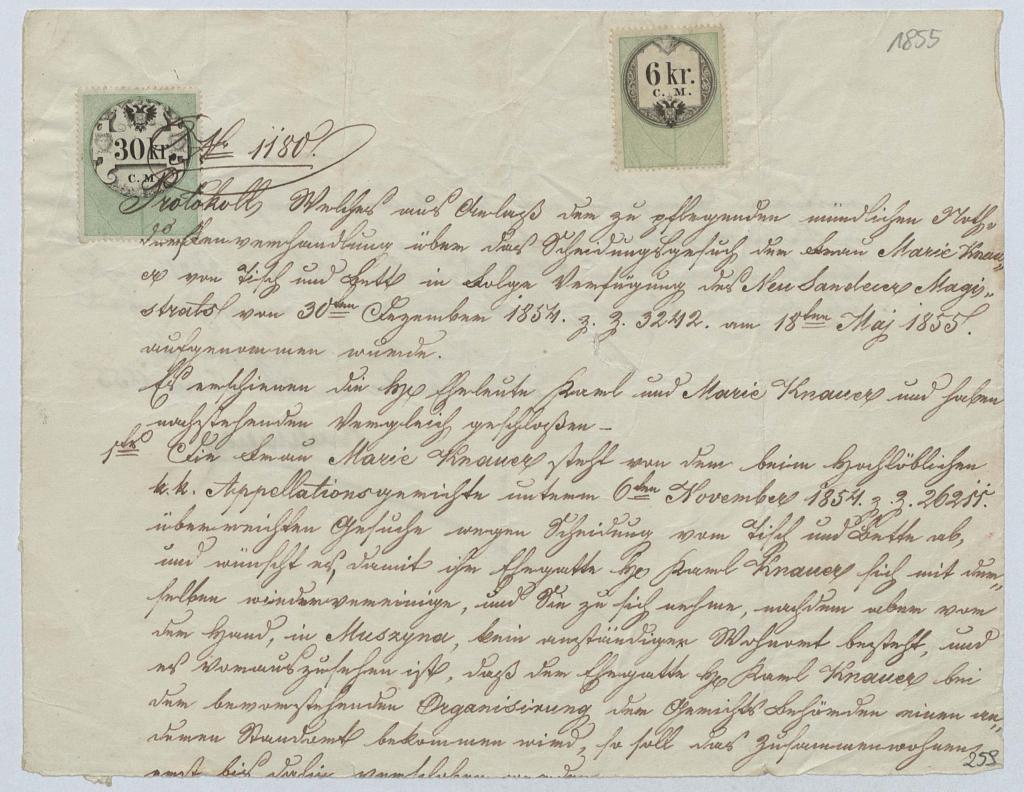 1855
6 kr.
C. M.
30 kr.
C. M.
Nr 1180.
Protokoll, Welches aus Anlaß der zu pflegenden mündlichen Noth-
durftenverhandlung über das Scheidungsgesuch der Frau Marie Knau-
er von Tisch und Bett in Folge Verfügung des Neu Sandecer Magi-
strats von 30ten Dezember 1854. z. Z. 3242. am 18ten Maj 1855.
aufgenommen wurde.
Es erschienen die H. Eheleute Karl und Marie Knauer und haben
nachstehenden Vergleich geschloßen –
1tens Die Frau Marie Knauer steht von dem beim Hochlöblichen
k. k. Appellationsgerichte unterm 6ten November 1854. z. Z. 26211.
überreichten Gesuche wegen Scheidung vom Tisch und Bette ab,
und wünscht es, damit ihr Ehegatte H. Karl Knauer sich mit der-
selben wiedervereinige, und Sie zu sich nehme, nachdem aber vor
der Hand, in Muszyna, kein anständiger Wohnort besteht, und
es vorauszusehen ist, daß der Ehegatte H. Karl Knauer bei
der bevorstehenden Organisirung der Gerichts Behörden einen an-
deren Standort bekommen wird, so soll das Zusammenwohnen
erst bis dahin verschoben werden
259